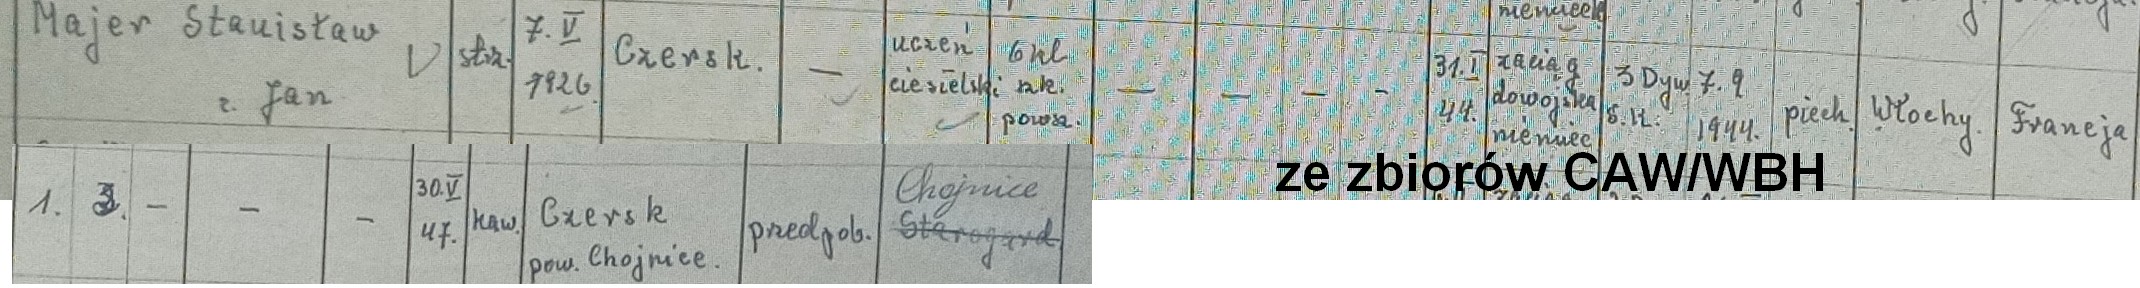 niemieck
Majer Stanisław V
z. Jan
strz.
7. V
1926.
Czersk.
—
uczeń
ciesielski
6 kl
szk.
powsz.
— — — -
31. I
44.
zaciąg
do wojska
niemiec
3 Dyw
S.K.
7. 9
1944.
piech.
Włochy.
Francja
ze zbiorów CAW/WBH
1. 3. — — —
30. V
47.
kaw.
Czersk
pow. Chojnice.
przedpob.
Chojnice
Starogard